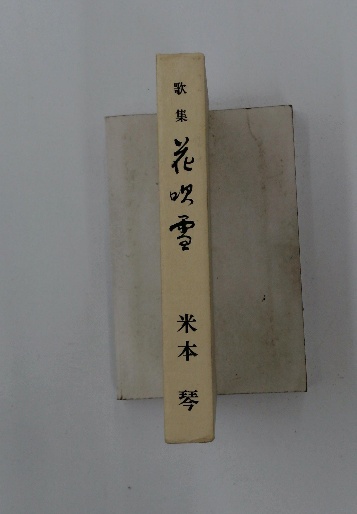 歌集 花吹雪 米本 琴